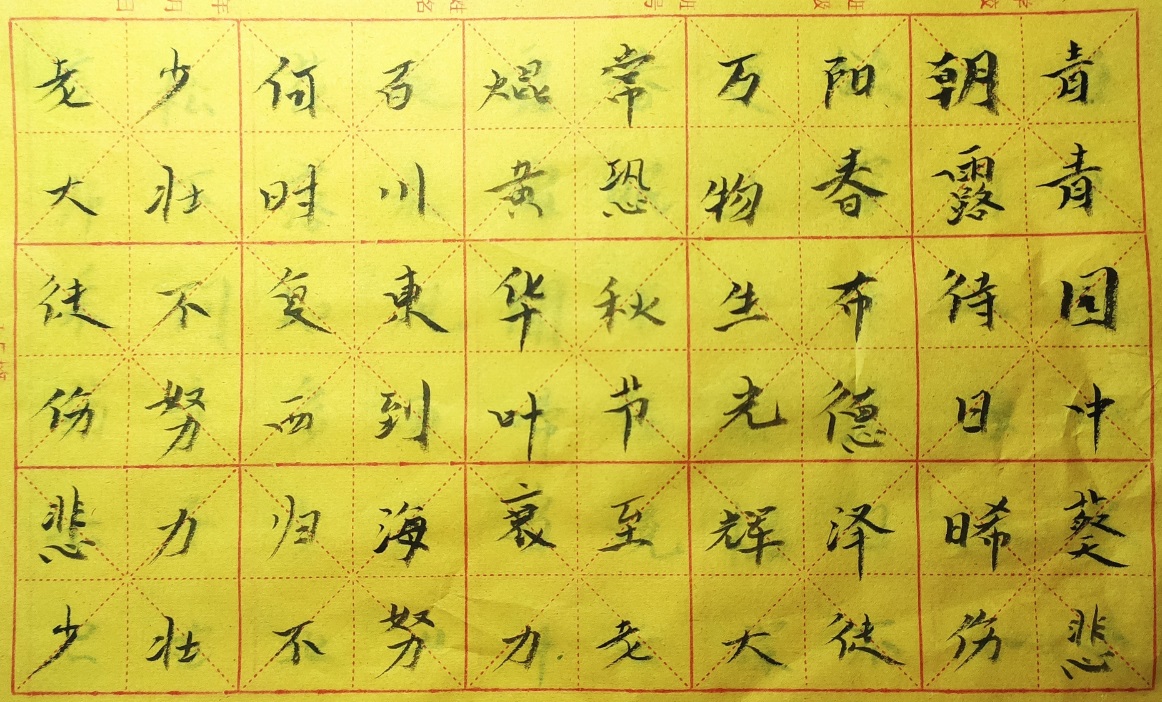 青青园中葵
朝露待日晞
阳春布德泽
万物生光辉
常恐秋节至
焜黄华叶衰
百川東到海
何时复西归
少壮不努力
老大徒伤悲
少壮不努力老大徒伤悲